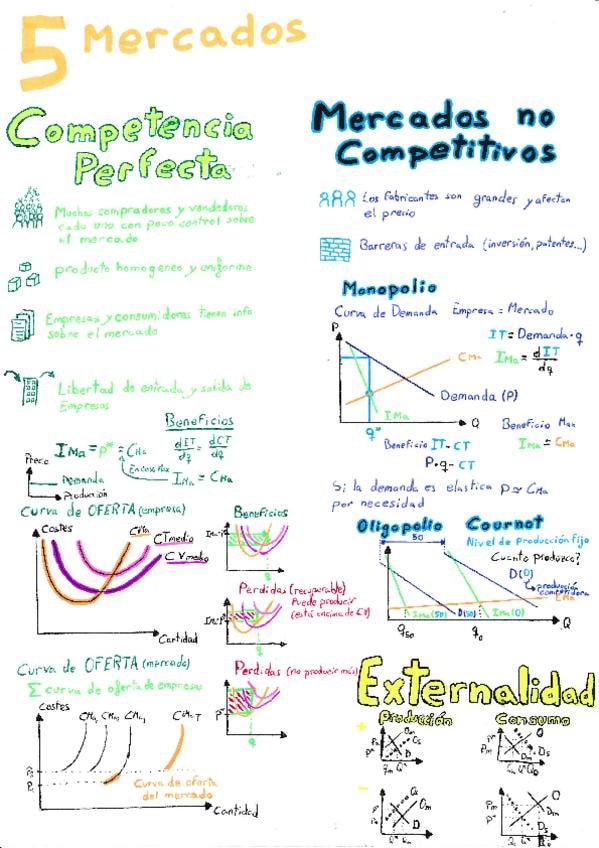 5 Mercados
Competencia
Perfecta
Muchos compradores y vendedores
cada uno con poco control sobre
el mercado
producto homogeneo y uniforme
Empresas y consumidores tienen info
sobre el mercado
Libertad de entrada y salida de
Empresas
Beneficios
IMa = P* = CMa
dIT/dq = dCT/dq
IMa = CMa
Precio
Demanda
Producción
Curva de OFERTA (empresa)
Costes
CMa
CTmedio
CVmedio
Cantidad
Beneficios
q
Perdidas (recuperable)
Puede producir
(está encima de CV)
q
Perdidas (no producir más)
P*
q
Curva de OFERTA (mercado)
Σ curva de oferta de empresas
Costes
CMa T
Curva de oferta
del mercado
Cantidad
Mercados no
Competitivos
Los fabricantes son grandes y afectan
el precio
Barreras de entrada (inversión, patentes...)
Monopolio
Curva de Demanda Empresa = Mercado
P
IT = Demanda · q
IMa = dIT/dq
CMa
Demanda (P)
IMa
Q
q*
Beneficio Max
IMa = CMa
Beneficio IT - CT
P·q - CT
Si la demanda es elastica P ≈ CMa
por necesidad
Oligopolio Cournot
50
Nivel de Producción fijo
Cuanto produzco?
D(0)
producción
competidora
CMa
IMa(50) D(50) IMa(0)
Q
q50
q0
Externalidad
Producción Consumo
+
-